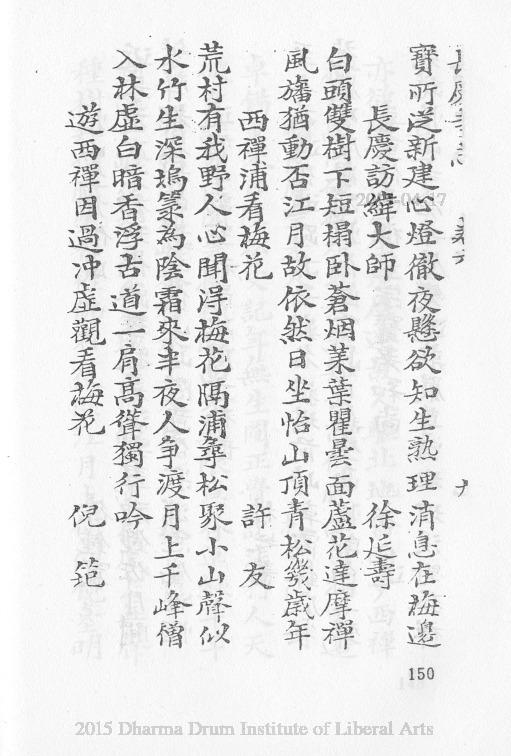 寶所從新建心燈徹夜懸欲知生熟理消息在梅邊
長慶訪緯大師 徐延壽
白頭雙樹下短榻臥蒼烟茉葉瞿曇面蘆花達摩禪
風旛猶動否江月故依然日坐怡山頂青松幾歲年
西禪浦看梅花 許友
荒村有我野人心聞得梅花隔浦尋松聚小山聲似
水竹生深塢篆為陰霜來半夜人爭渡月上千峰僧
入林虛白暗香浮古道一肩高聳獨行吟
遊西禪因過冲虛觀看梅花 倪範
150
2015 Dharma Drum Institute of Liberal Arts